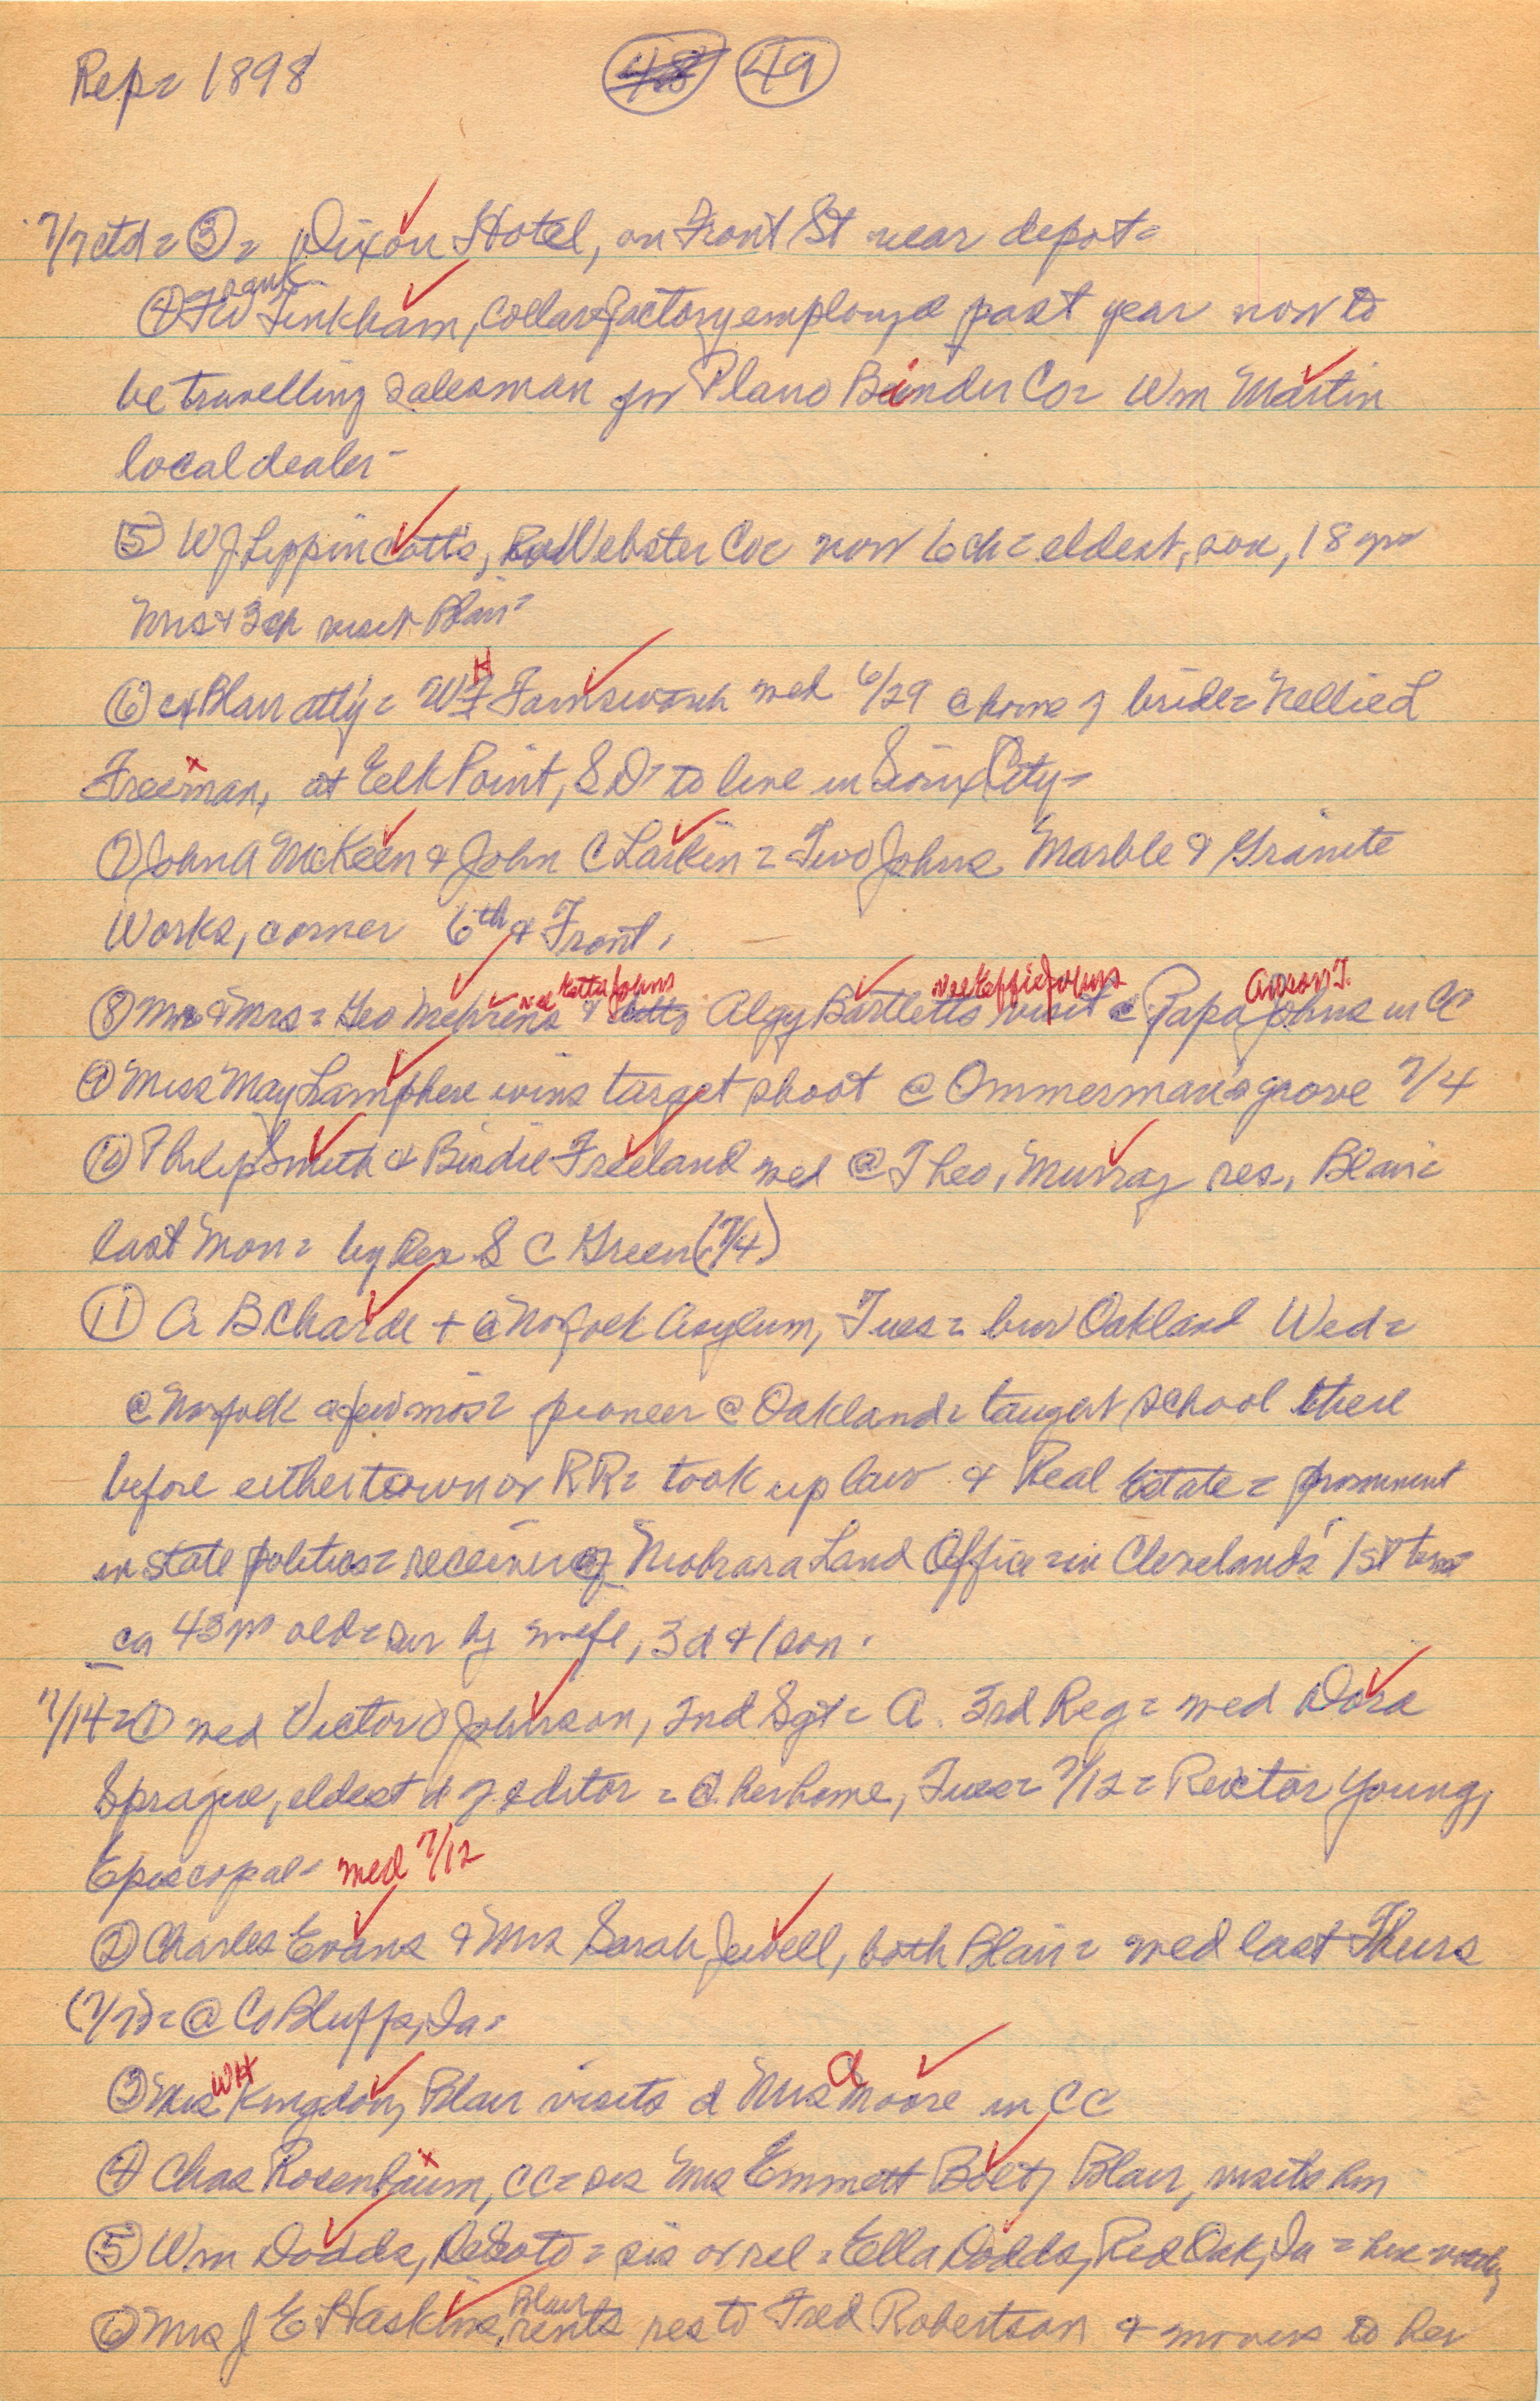 Rep= 1898 48 49
7/7 ctd= ③= Dixon Hotel, on Front St near depot=
④ FW Frank Tinkham, collar factory employe past year now to
be travelling salesman for Plano Binder Co= Wm Martin
local dealer-
⑤ W J Lippincotts, Webster Co= now 6 ch= eldest, son, 18 yrs
Mrs & 3 ch visit Blair=
⑥ ex Blair atty= W H Farnsworth wed 6/29 @ home of bride= Nellie L
Freeman, at Elk Point, SD= to live in Sioux City=
⑦ John A McKeen & John C Larkin= Two Johns Marble & Granite
Works, corner 6th & Front.
⑧ Mr & Mrs= Geo Mehrens nee Etta Johns & Algy Bartletts nee Effie Johns visit @ Papa Anson T. Johns in CC
⑨ Miss May Lamphere wins target shoot @ Ommerman's grove 7/4
⑩ Philip Smith & Birdie Freeland wed @ Theo. Murray res, Blair=
last Mon= by Rev S C Green (7/4)
⑪ A B Charde + @ Norfolk Asylum, Tues= bur Oakland Wed=
@ Norfolk a few mos= pioneer @ Oakland= taught school there
before either town or RR= took up law & Real Estate= prominent
in state politics= receiver of Niobrara Land Office= in Cleveland's 1st term=
ca 43 yrs old= sur by wife, 3 d & 1 son.
7/14=① wed Victor O Johnson, 2nd Sgt= A. 3rd Reg= wed Dora
Sprague, eldest d of editor = @ her home, Tues= 7/12= Rector Young,
Episcopal= wed 7/12
② Charles Evans & Mrs Sarah Jewell, both Blair= wed last Thurs
(7/7)= @ Co Bluffs, Ia=
③ Mrs W H Kingdon, Blair visits d Mrs A Moore in CC
④ Chas Rosenbaum, CC= sis Mrs Emmett Bolt, Blair, visits him
⑤ Wm Dodds, DeSoto= sis or rel= Ella Dodds, Red Oak, Ia= here
⑥ Mrs J E Haskins, Blair rents res to Fred Robertson & moves to her